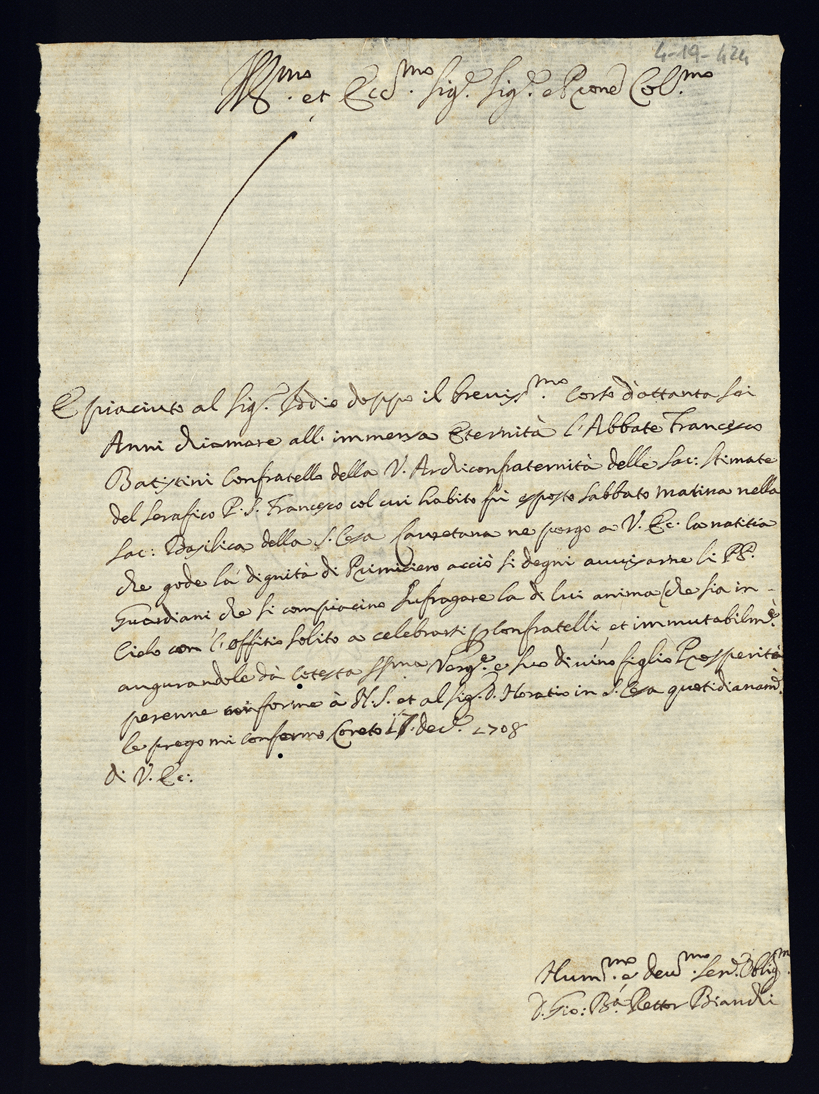 4-19-424
Ill.mo et Ecc.mo Sig.r Sig.r e Prone Col.mo
È piaciuto al Sig.r Iddio doppo il breviss.mo corso d'ottanta sei
Anni chiamare all' immensa Eternità l'Abbate Francesco
Batistini Confratello della V. Archiconfraternità delle Sac: Stimate
del Serafico P. S. Francesco col cui habito fù esposto Sabbato matina nella
Sac: Basilica della S. Casa Lauretana ne porgo a V. Ec: la notitia
che gode la dignità di Primicero acciò si degni auuisarne li PP.
Guardiani che si compiacino Sufragare la di lui anima (che sia in
Cielo con l'offitio solito a celebrarsi p confratelli, et immutabilm.e
augurandole dà cotesta SSma Verg.e e suo diuino figlio Prosperità
perenne conforme à N.S. et al Sig. D. Horatio in S. Casa quotidianam.e
le prego mi confermo Loreto 17. dec.e 1708
di V. Ec:
Hum.mo e deu.mo Ser.e Oblig.m
D. Gio: B.a Rettor Bianchi